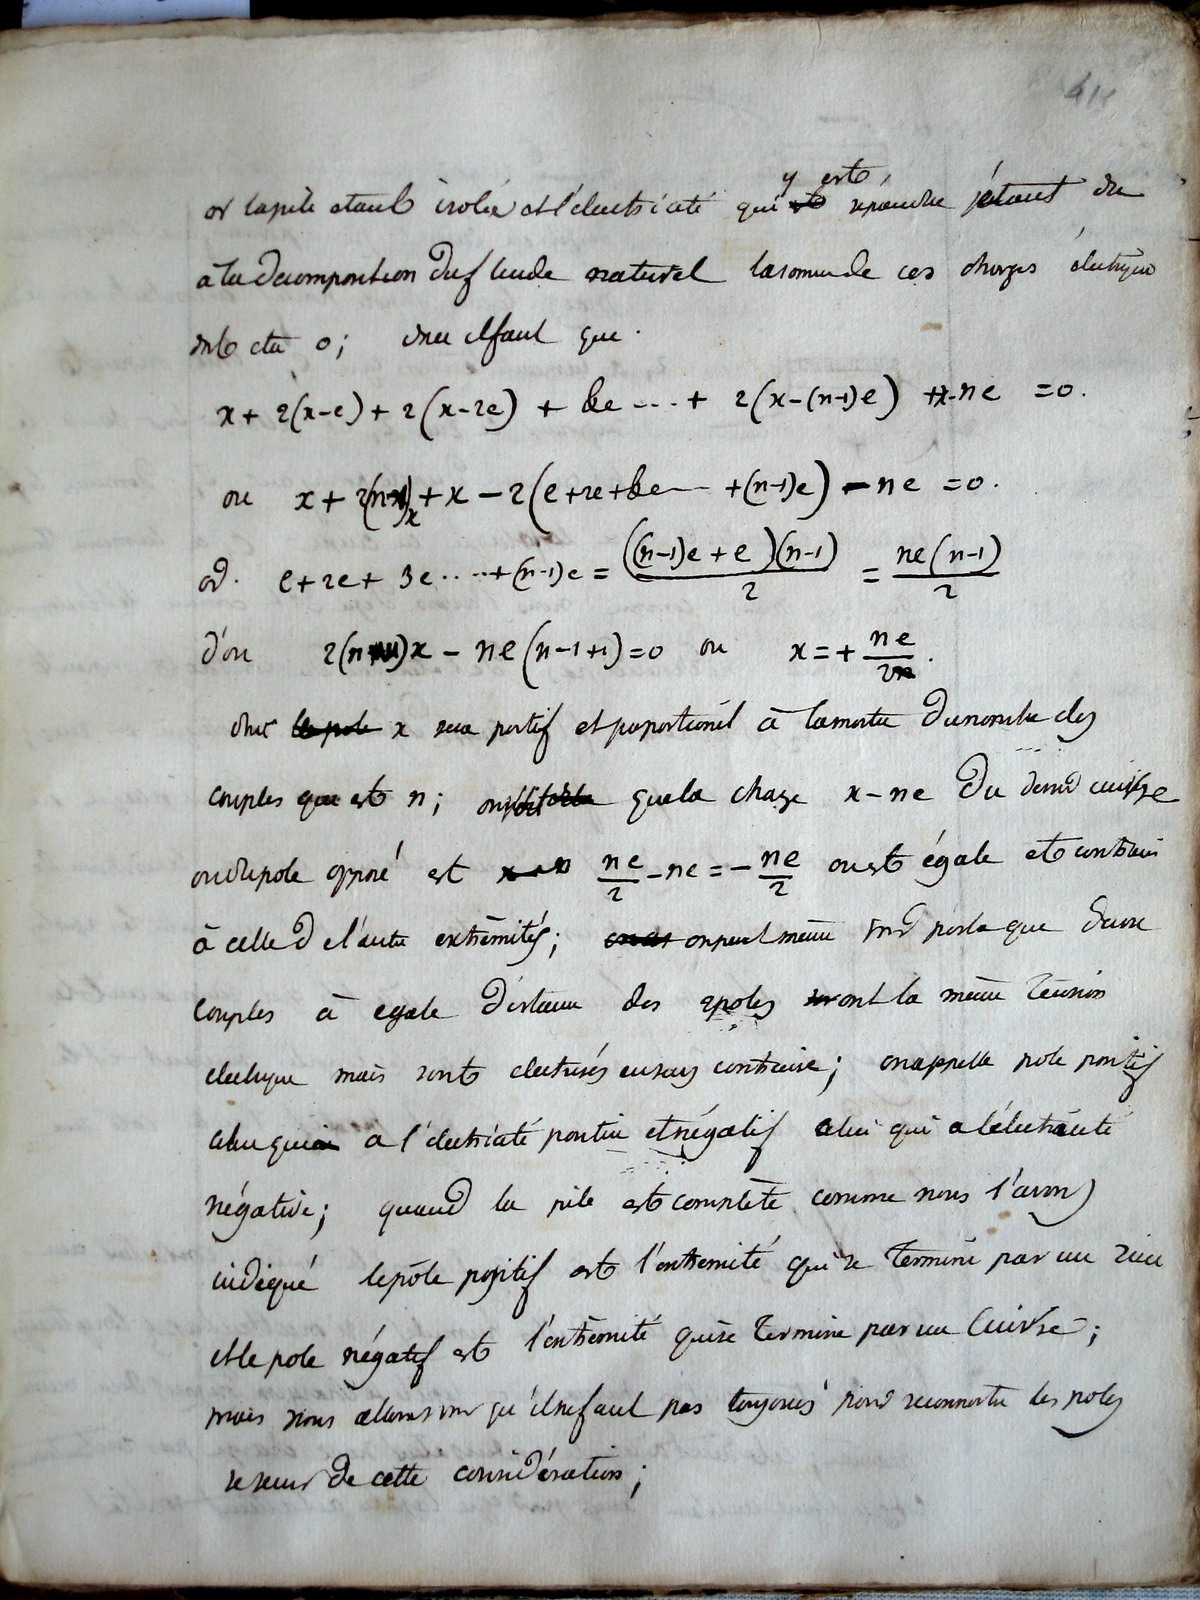 y est
or la pile etant isolée et l'électricité qui répandue étant due
à la décomposition du fluide naturel la somme de ces charges électrique
doit etre 0; donc il faut que
x + 2(x-e) + 2(x-2e) + &c ---- + 2(x-(n-1)e) + x-ne = 0.
ou x + 2(n-1)x + x - 2(e+2e+&c--- +(n-1)e) - ne = 0.
or. e+2e+ 3e ----+(n-1)e = ((n-1)e + e)(n-1)/2 = ne(n-1)/2
d'ou 2(n)x - ne(n-1+1)=0 ou x=+ ne/2.
donc le pole x sera positif et proportionel à la moitié du nombre des
couples que est n; que la charge x-ne du dernier cuivre
ou du pole opposé est ne/2 - ne = - ne/2 ou est égale et contraire
à celle de l'autre extrêmités; on peut même voir par la que deux
couples à egale distance des 2 poles ont la même tension
electrique mais sont electrisés en sens contraire; on appelle pole positif
celui qui a l'électricité positive et négatif celui qui a l'électricité
négative; quand la pile est complète comme nous l'avons
indiqué le pôle positif est l'extremité qui se termine par un zinc
et le pole négatif est l'extrémité qui se termine par un Cuivre;
mais nous allons voir qu'il ne faut pas toujours pour reconnoitre les poles
se servir de cette considération;